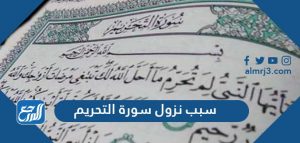 سورة التحريم
بسم الله الرحمن الرحيم
يا أيها النبي لم تحرم ما أحل الله لك تبتغي مرضات أزواجك
رحيم
almrj3.com
المرجع
سبب نزول سورة التحريم